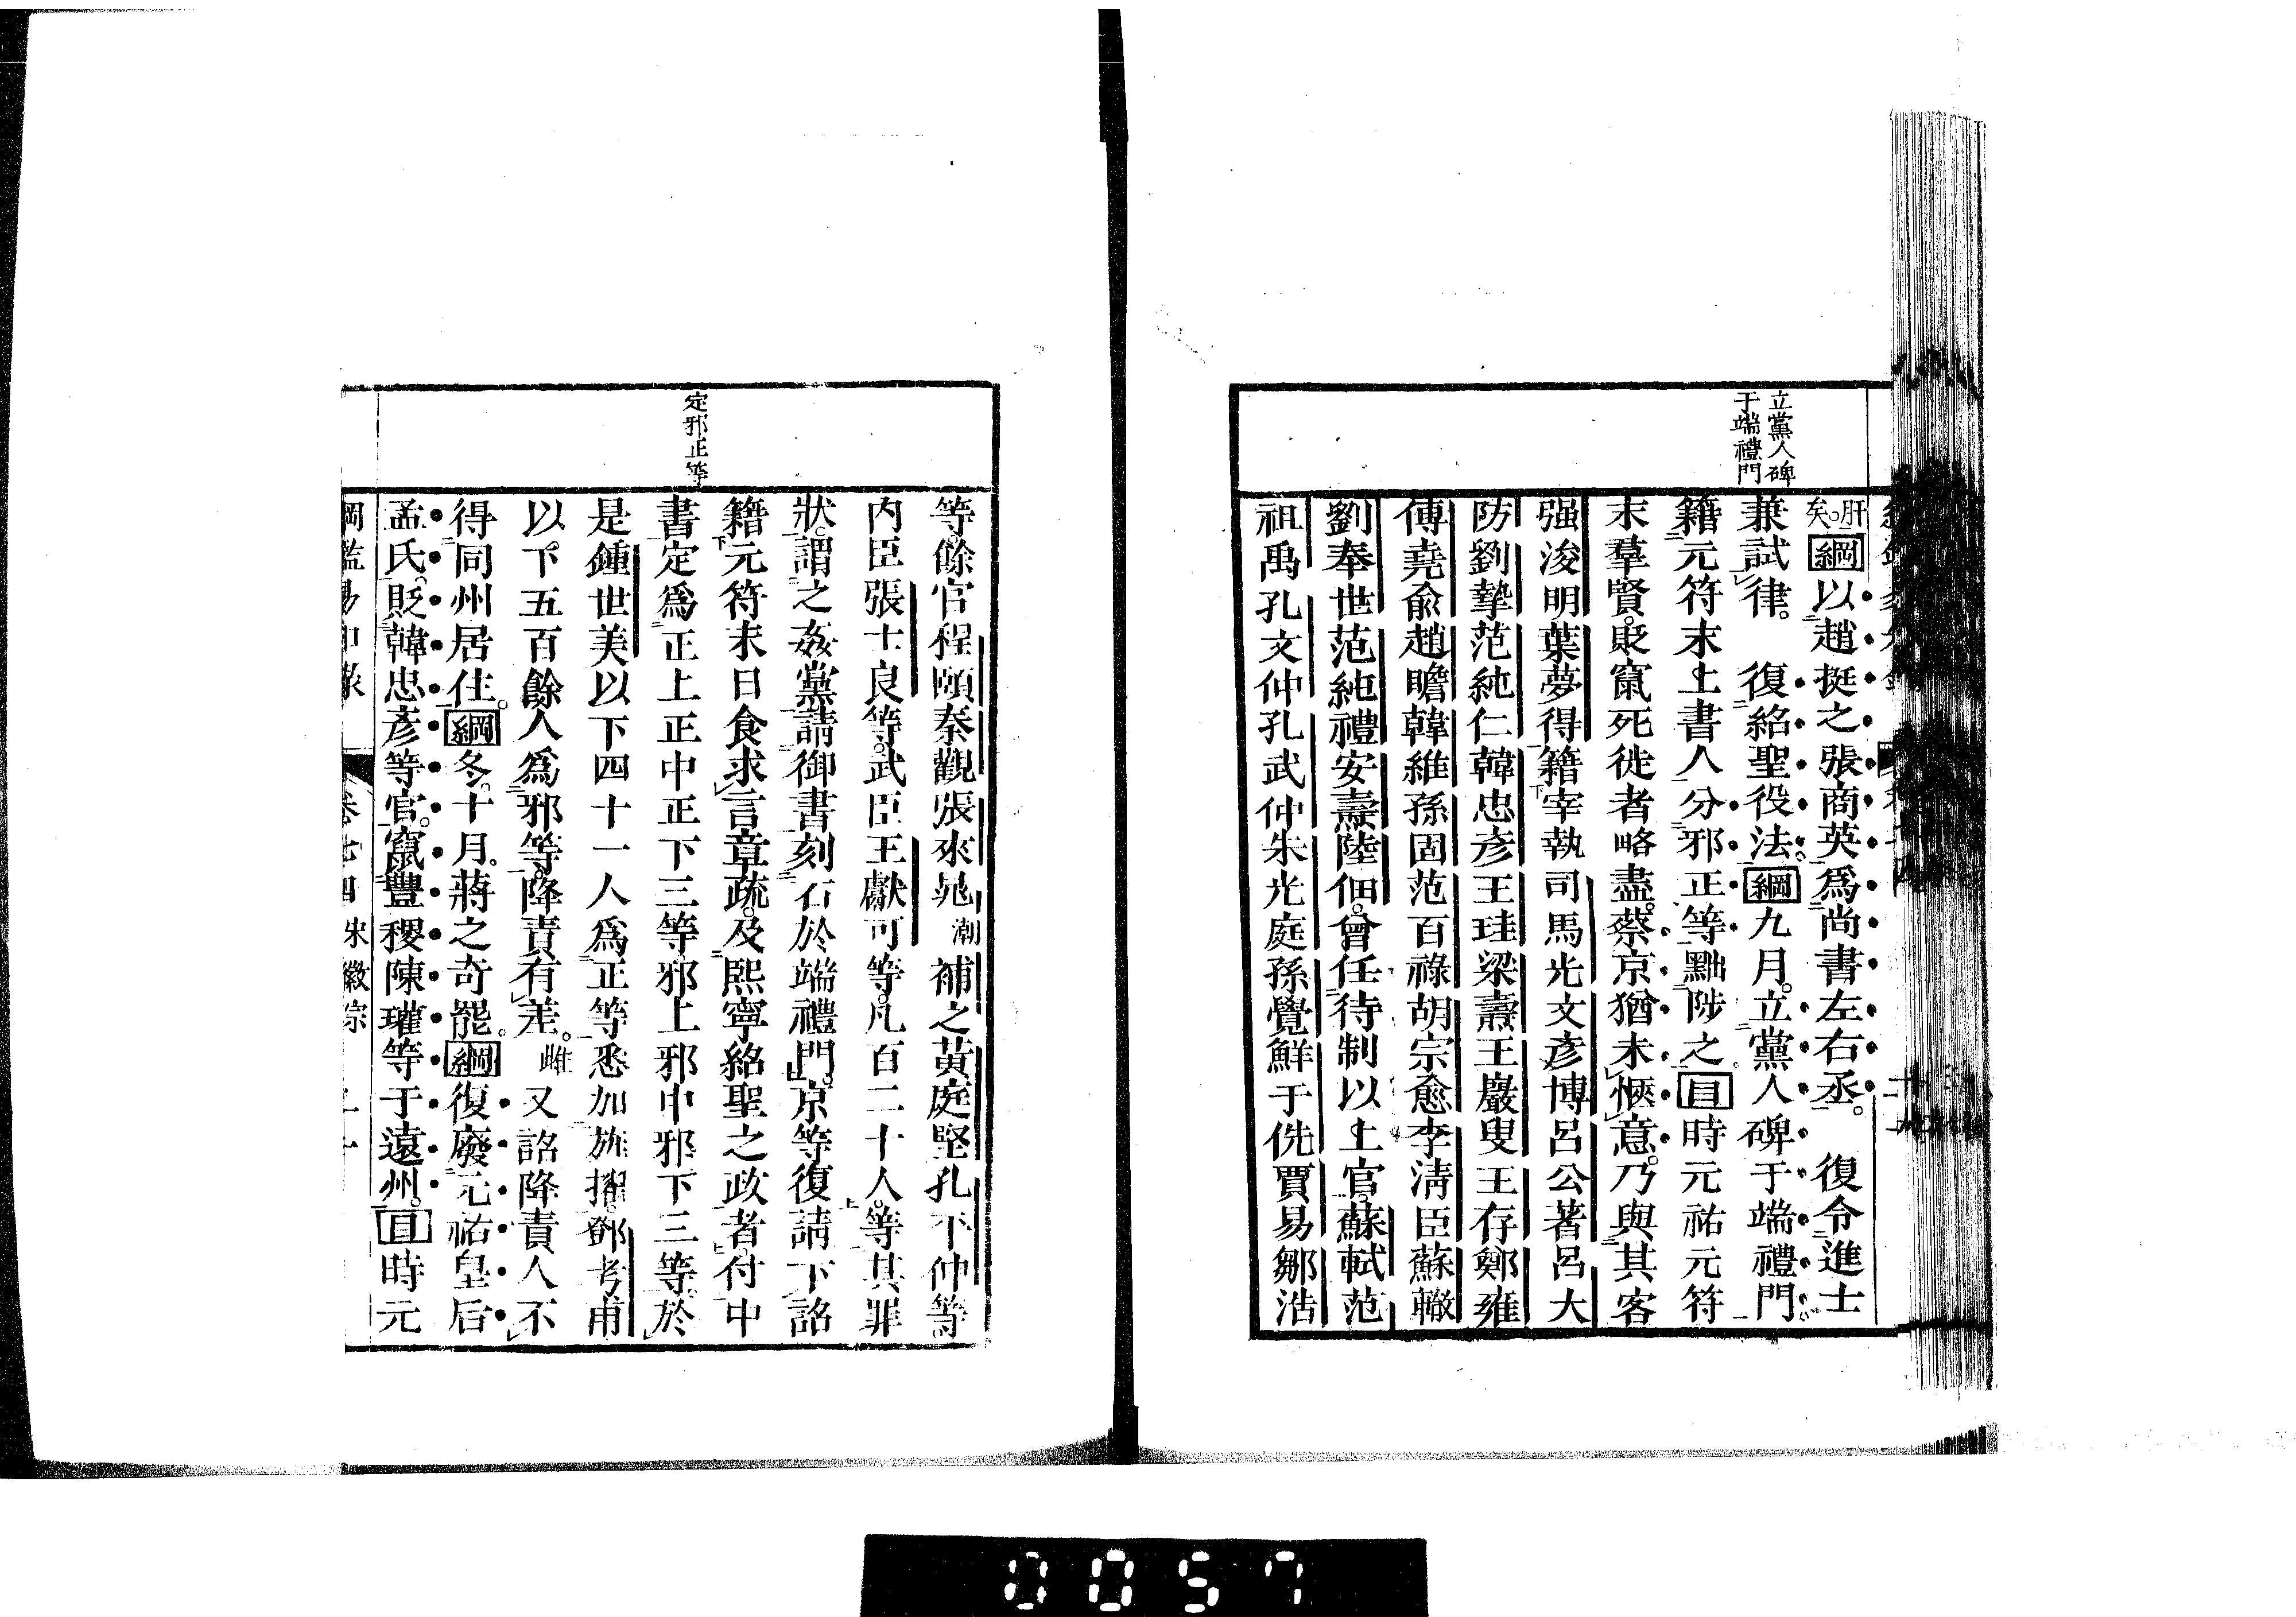 立黨人碑
于端禮門
肝
矣。綱以趙挺之張商英爲尚書左右丞。 復令進士
兼試律。 復紹聖役法。綱九月。立黨人碑于端禮門。
籍元符末上書人分邪正等黜陟之。目時元祐元符
末羣賢。貶竄死徙者略盡。蔡京猶未愜意。乃與其客
强浚明葉夢得籍宰執司馬光文彥博呂公著呂大
防劉摯范純仁韓忠彥王珪梁燾王巖叟王存鄭雍
傅堯俞趙瞻韓維孫固范百祿胡宗愈李淸臣蘇轍
劉奉世范純禮安燾陸佃。曾任待制以上官。蘇軾范
祖禹孔文仲孔武仲朱光庭孫覺鮮于侁賈易鄒浩
定邪正等
等。餘官程頤秦觀張耒晁潮補之黃庭堅孔平仲等。
內臣張士良等。武臣王獻可等。凡百二十人。等其罪
狀。謂之姦黨。請御書刻石於端禮門。京等復請下詔
籍元符末日食求言章疏。及熙寧紹聖之政者。付中
書定爲正上正中正下三等。邪上邪中邪下三等。於
是鍾世美以下四十一人爲正等。悉加旌擢。鄧考甫
以下五百餘人爲邪等。降責有差。雌又詔降責人不
得同州居住。綱冬。十月。蔣之奇罷。綱復廢元祐皇后
孟氏。貶韓忠彥等官。竄豐稷陳瓘等于遠州。目時元
綱鑑易知錄 卷七四 宋徽宗 二十
0057